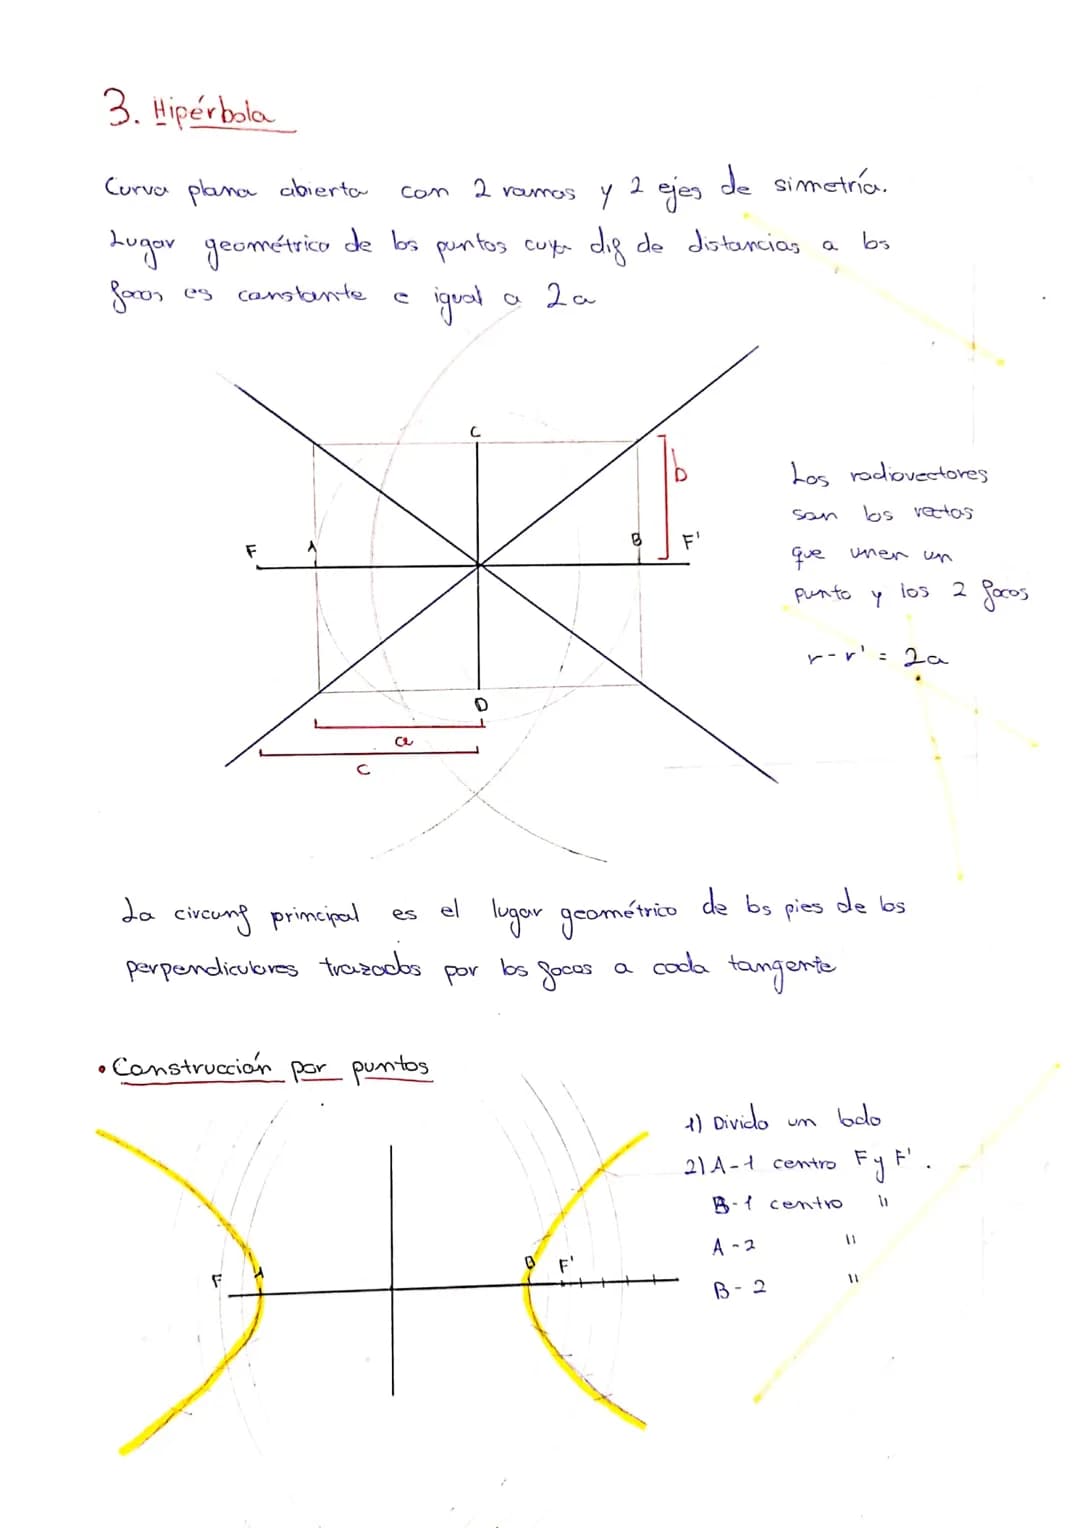 3. Hipérbola
Curva plana abierta con 2 ramas y 2 ejes de simetría.
Lugar geométrico de los puntos cuya dif de distancias a los
focos es constante e igual a 2a
C
b
F A B F'
D
a
c
Los radiovectores
son las rectas
que unen un
punto y los 2 focos
r-r' = 2a
La circunf principal es el lugar geométrico de los pies de las
perpendiculares trazadas por los focos a cada tangente
• Construcción por puntos
F A B F'
1) Divido un lado
2) A-1 centro F y F'.
B-1 centro "
A-2 "
B-2 "